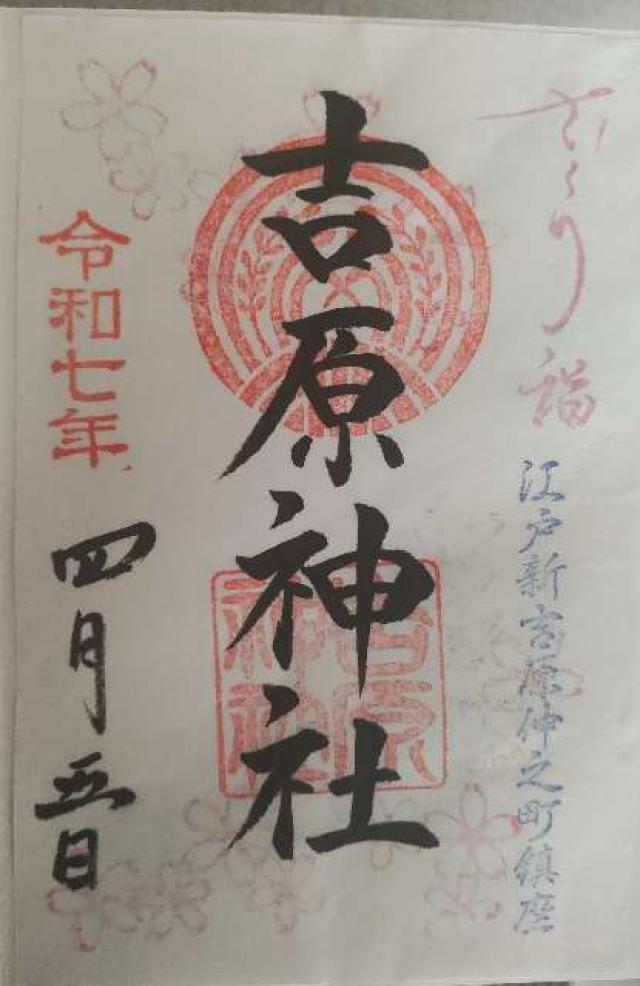 福
江戸新吉原仲之町鎮座
吉原神社
吉原
神社
令和七年
四月五日